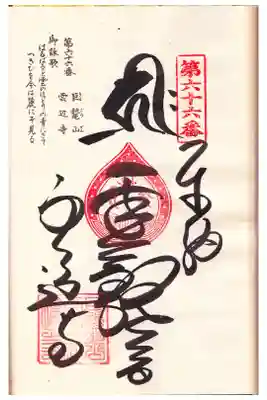 第六十六番
奉納
雲辺寺
第六十六番　巨鼇山
雲辺寺
御詠歌
はるばると雲のほとりの寺にきて
つきひを今は麓にぞ見る